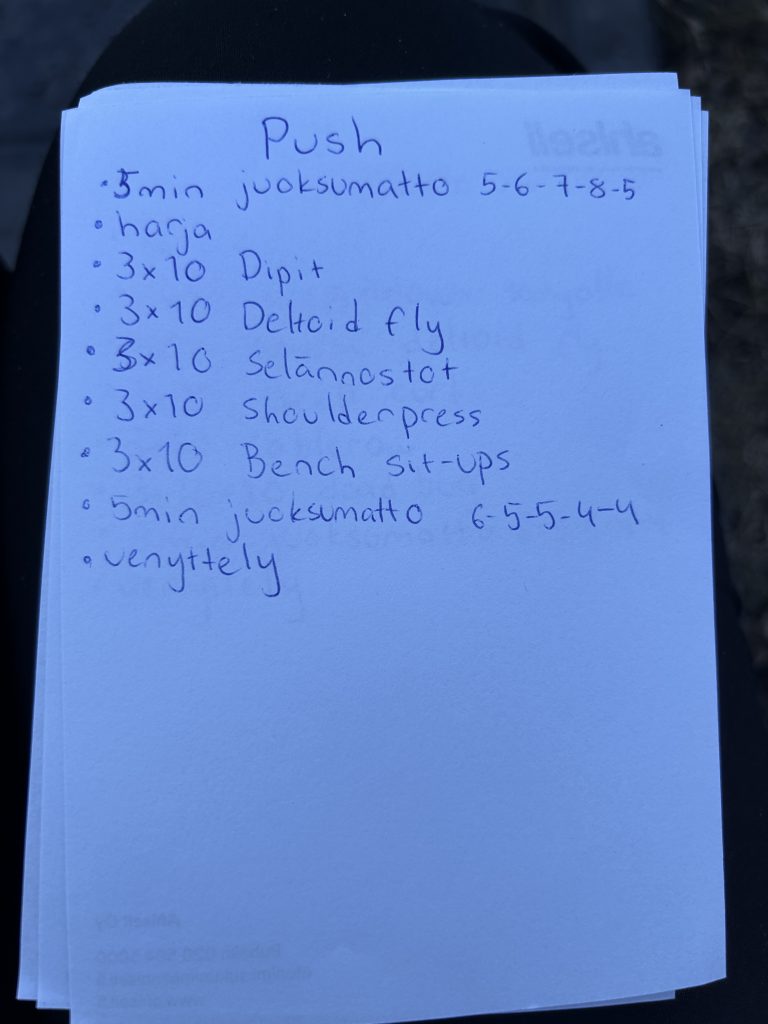 Push
• 5min juoksumatto 5-6-7-8-5
• harja
• 3x10 Dipit
• 3x10 Deltoid fly
• 3x10 Selännostot
• 3x10 Shoulderpress
• 3x10 Bench sit-ups
• 5min juoksumatto 6-5-5-4-4
• venyttely